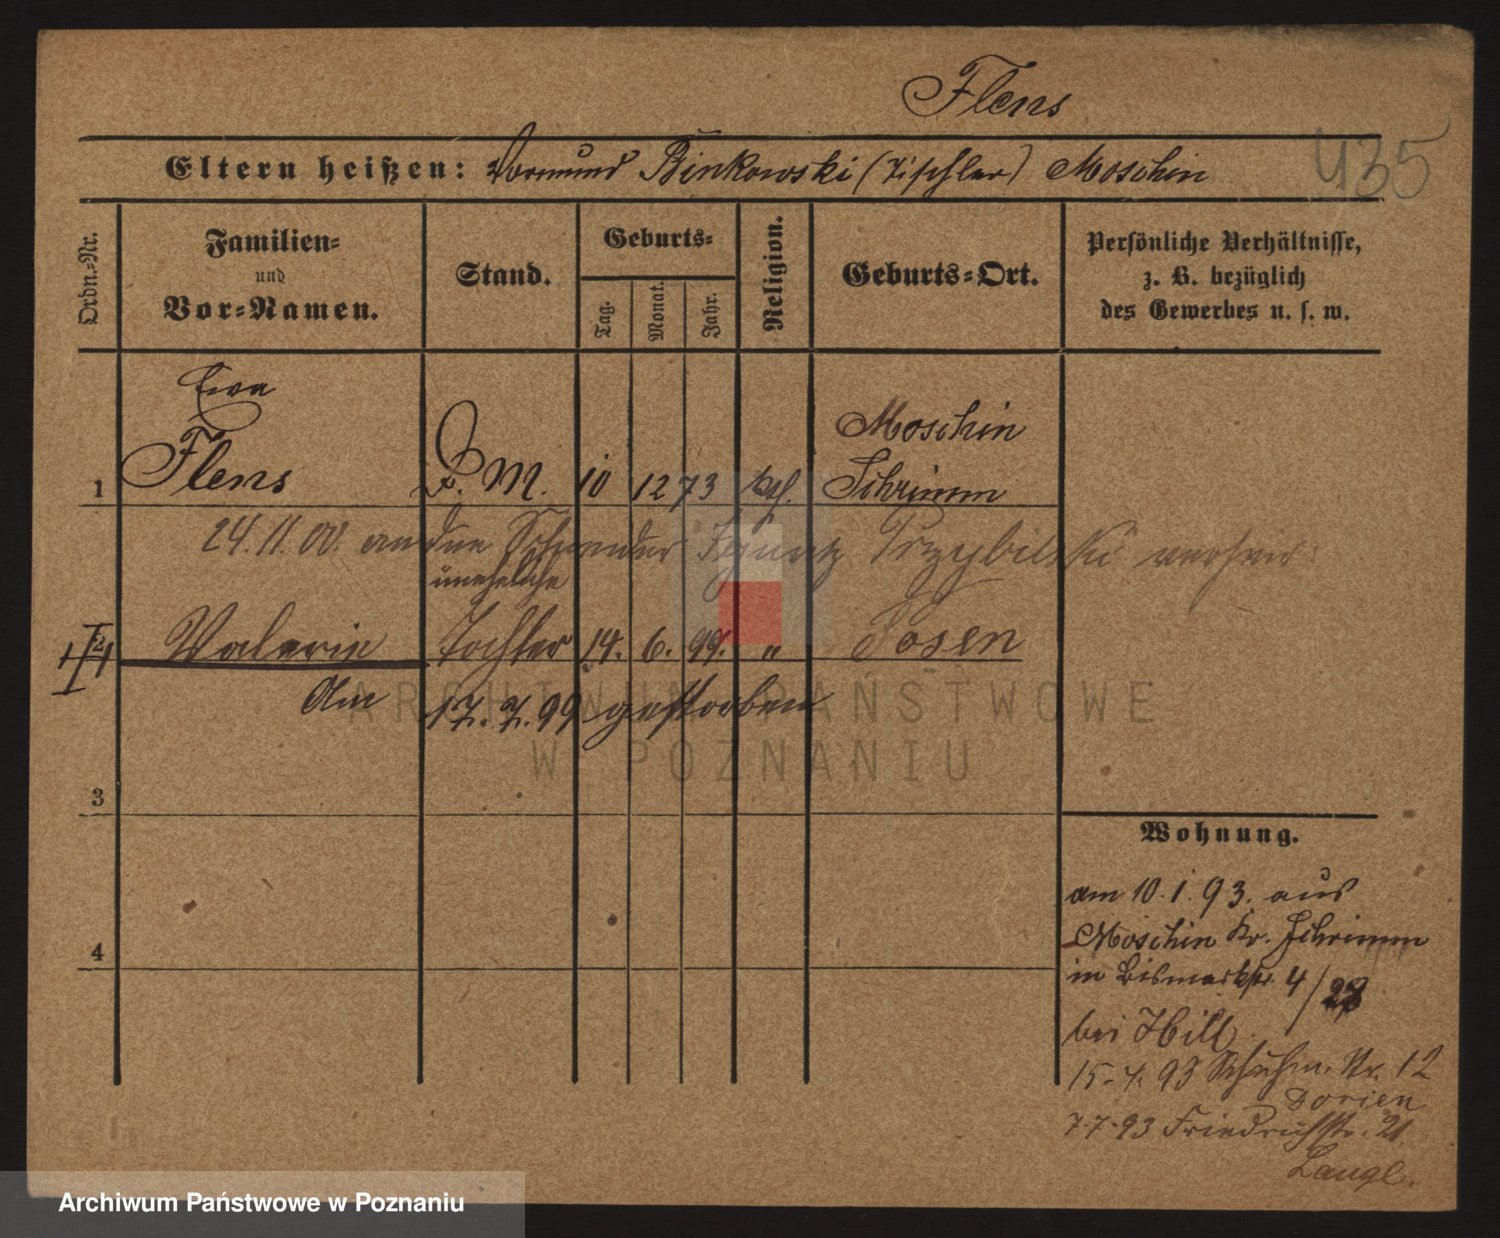 Flens
Eltern heißen: Vormund Binkowski (Tischler) Moschin
435
Ordn.-Nr.
Familien-
und
Vor-Namen.
Stand.
Geburts-
Tag.
Monat.
Jahr.
Religion.
Geburts-Ort.
Persönliche Verhältnisse,
z. B. bezüglich
des Gewerbes u. s. w.
Ewa
Flens
1
D. M. 10 12 73 ktl.
Moschin
Schrimm
24.11.00. an den Schneider Ignatz Przybilski verheir.
uneheliche
2 Valerie Tochter 14. 6. 99. " Posen
Am 17. 7. 99 gestorben
3
4
Wohnung.
am 10.1.93. aus
Moschin Kr. Schrimm
in Bismarkstr. 4/
bei Hill
15.4.93 Schuhm. Str. 12
Dorien
7.7.93 Friedrichstr. 21.
ARCHIWUM PAŃSTWOWE
W POZNANIU
Archiwum Państwowe w Poznaniu